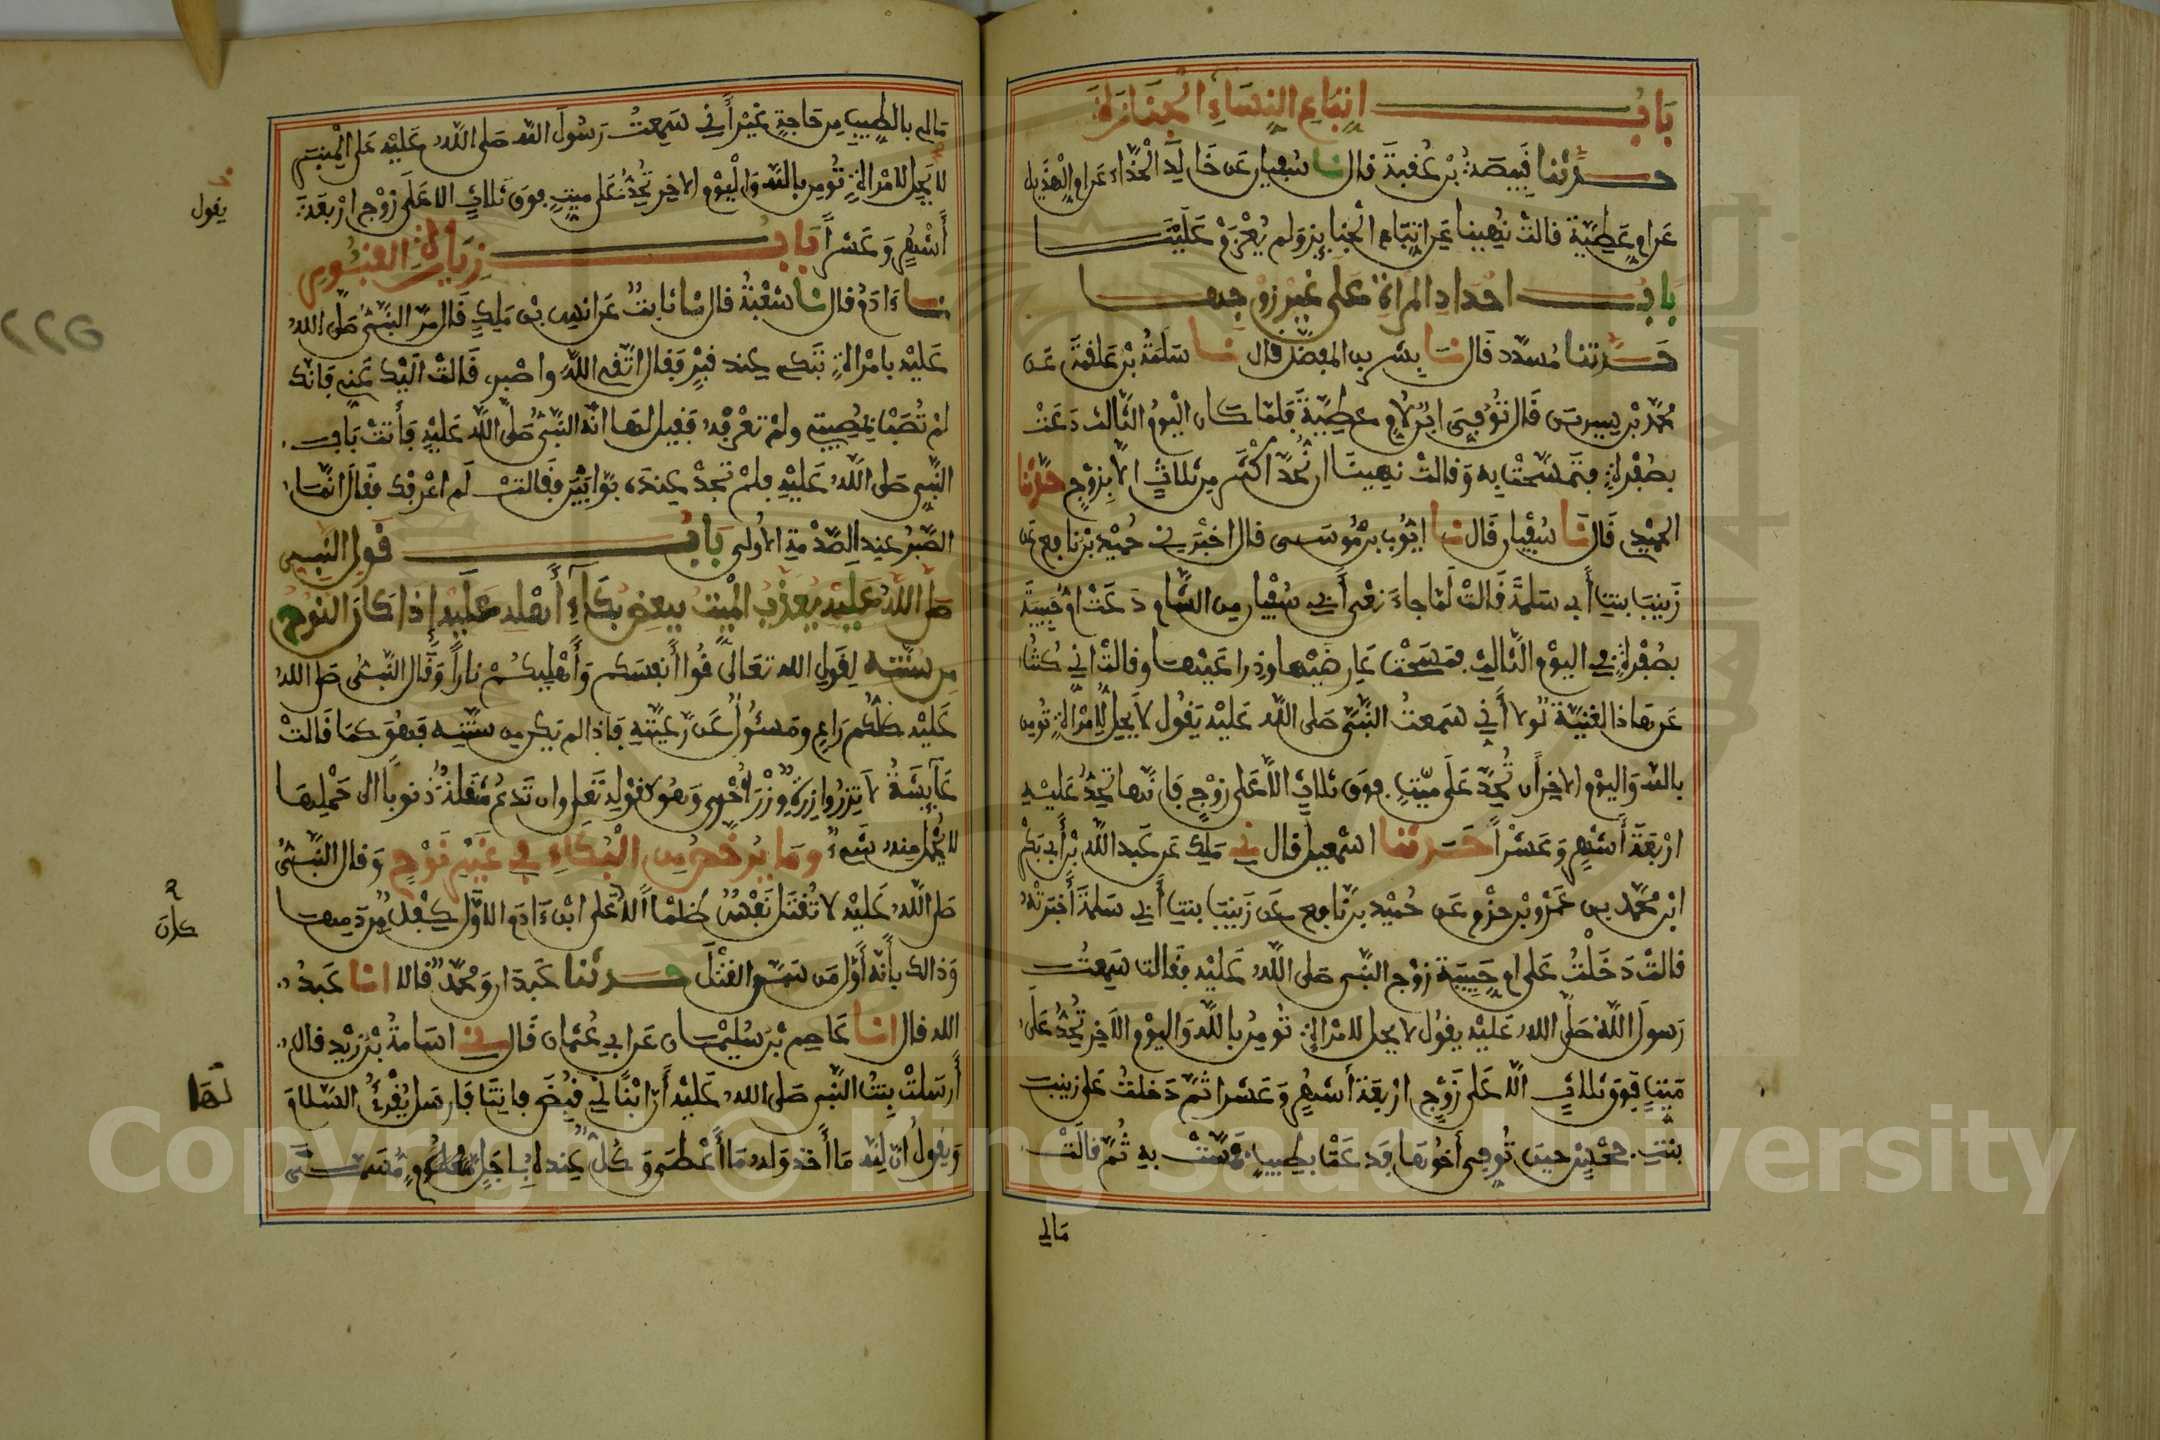 باب اتباع النساء الجنازة
حدثنا قبيصة بن عقبة قال نا سفيان عن خالد الحذاء عن ام الهذيل
عن ام عطية قالت نهينا عن اتباع الجنايز ولم يعزم علينا
باب احداد المراة على غير زوجها
حدثنا مسدد قال نا بشر بن المفضل قال نا سلمة بن علقمة عن
محمد بن سيرين قال توفي ابن لام عطية فلما كان اليوم الثالث دعت
بصفرة فتمسحت به وقالت نهينا ان نحد اكثر من ثلاث الا بزوج حدثنا
الحميدي قال نا سفيان قال نا ايوب بن موسى قال اخبرني حميد بن نافع عن
زينب بنت أبي سلمة قالت لما جاء نعي أبي سفيان من الشام دعت ام حبيبة
بصفرة في اليوم الثالث فمسحت عارضيها وذراعيها وقالت اني كنت
عن هاذا لغنية لولا أني سمعت النبي صلى الله عليه يقول لا يحل لامراة تومن
بالله واليوم الاخر أن تحد على ميت فوق ثلاث الا على زوج فانها تحد عليه
اربعة أشهر وعشرا حدثنا اسمعيل قال ني ملك عن عبد الله بن أبي بكر
ابن محمد بن عمرو بن حزم عن حميد بن نافع عن زينب بنت أبي سلمة أخبرته
قالت دخلت على ام حبيبة زوج النبي صلى الله عليه فقالت سمعت
رسول الله صلى الله عليه يقول لا يحل لامراة تومن بالله واليوم الآخر تحد على
ميت فوق ثلاث الا على زوج اربعة أشهر وعشرا ثم دخلت على زينب
بنت جحش حين توفي أخوها فدعت بطيب فمست به ثم قالت
مالي
مالي بالطيب من حاجة غير أني سمعت رسول الله صلى الله عليه على المنبر
لا يحل لامراة تومن بالله واليوم الاخر تحد على ميت فوق ثلاث الا على زوج اربعة
يقول
أشهر وعشرا باب زيارة القبور
نا ءادم قال نا شعبة قال نا ثابت عن انس بن ملك قال مر النبي صلى الله
عليه بامراة تبكي عند قبر فقال اتقي الله واصبري قالت اليك عني فانك
لم تصب بمصيبتي ولم تعرفه فقيل لها انه النبي صلى الله عليه فأتت باب
النبي صلى الله عليه فلم تجد عنده بوابين فقالت لم اعرفك فقال انما
الصبر عند الصدمة الاولى باب قول النبي
صلى الله عليه يعذب الميت ببعض بكاء أهله عليه إذا كان النوح
من سنته لقول الله تعالى قوا أنفسكم وأهليكم نارا وقال النبي صلى الله
عليه كلكم راع ومسئول عن رعيته فاذا لم يكن من سنته فهو كما قالت
عآيشة لا تزر وازرة وزر أخرى وهو كقوله تعلى وان تدع مثقلة ذنوبا الى حملها
لا يحمل منه شيء وما يرخص من البكاء في غير نوح وقال النبي
صلى الله عليه لا تقتل نفس ظلما الا على ابن ءادم الاول كفل من دمها
كان
وذالك بأنه أول من سن القتل حدثنا عبدان ومحمد قالا انا عبد
الله قال انا عاصم بن سليمان عن ابي عثمان قال ني اسامة بن زيد قال
أرسلت بنت النبي صلى الله عليه أن ابنا لي قبض فاتنا فارسل يقرئ السلام
لها
ويقول ان لله ما أخذ وله ما أعطى وكل عنده باجل مسمى
٢٢٥